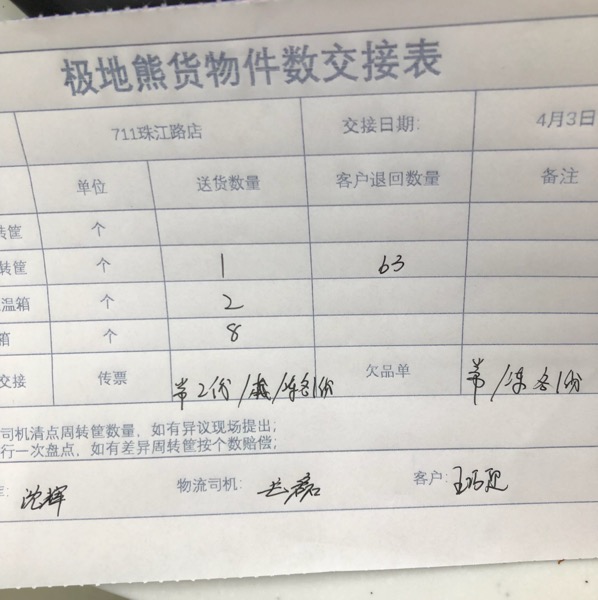 极地熊货物件数交接表
711珠江路店 交接日期: 4月3日
单位 送货数量 客户退回数量 备注
转筐 个
转筐 个 1 63
温箱 个 2
箱 个 8
交接 传票 常2份/ /冻各1份 欠品单 常/冻各1份
司机清点周转筐数量,如有异议现场提出;
行一次盘点,如有差异周转筐按个数赔偿;
沈辉 物流司机: 客户: